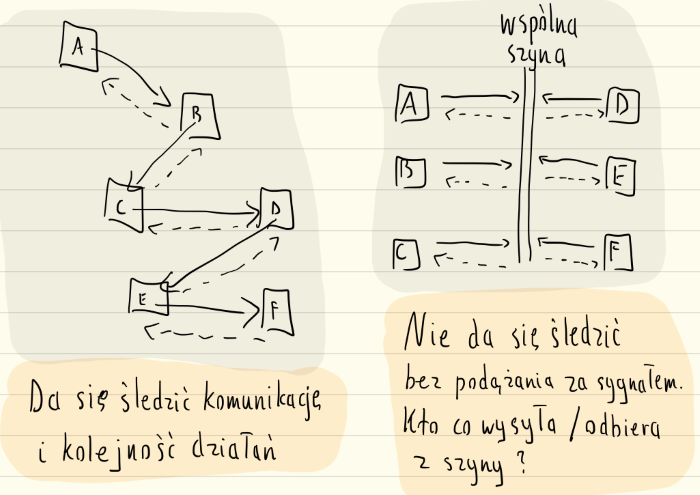 A
B
C
D
E
F
Da się śledzić komunikację
i kolejność działań
wspólna
szyna
A
D
B
E
C
F
Nie da się śledzić
bez podążania za sygnałem.
Kto co wysyła / odbiera
z szyny?